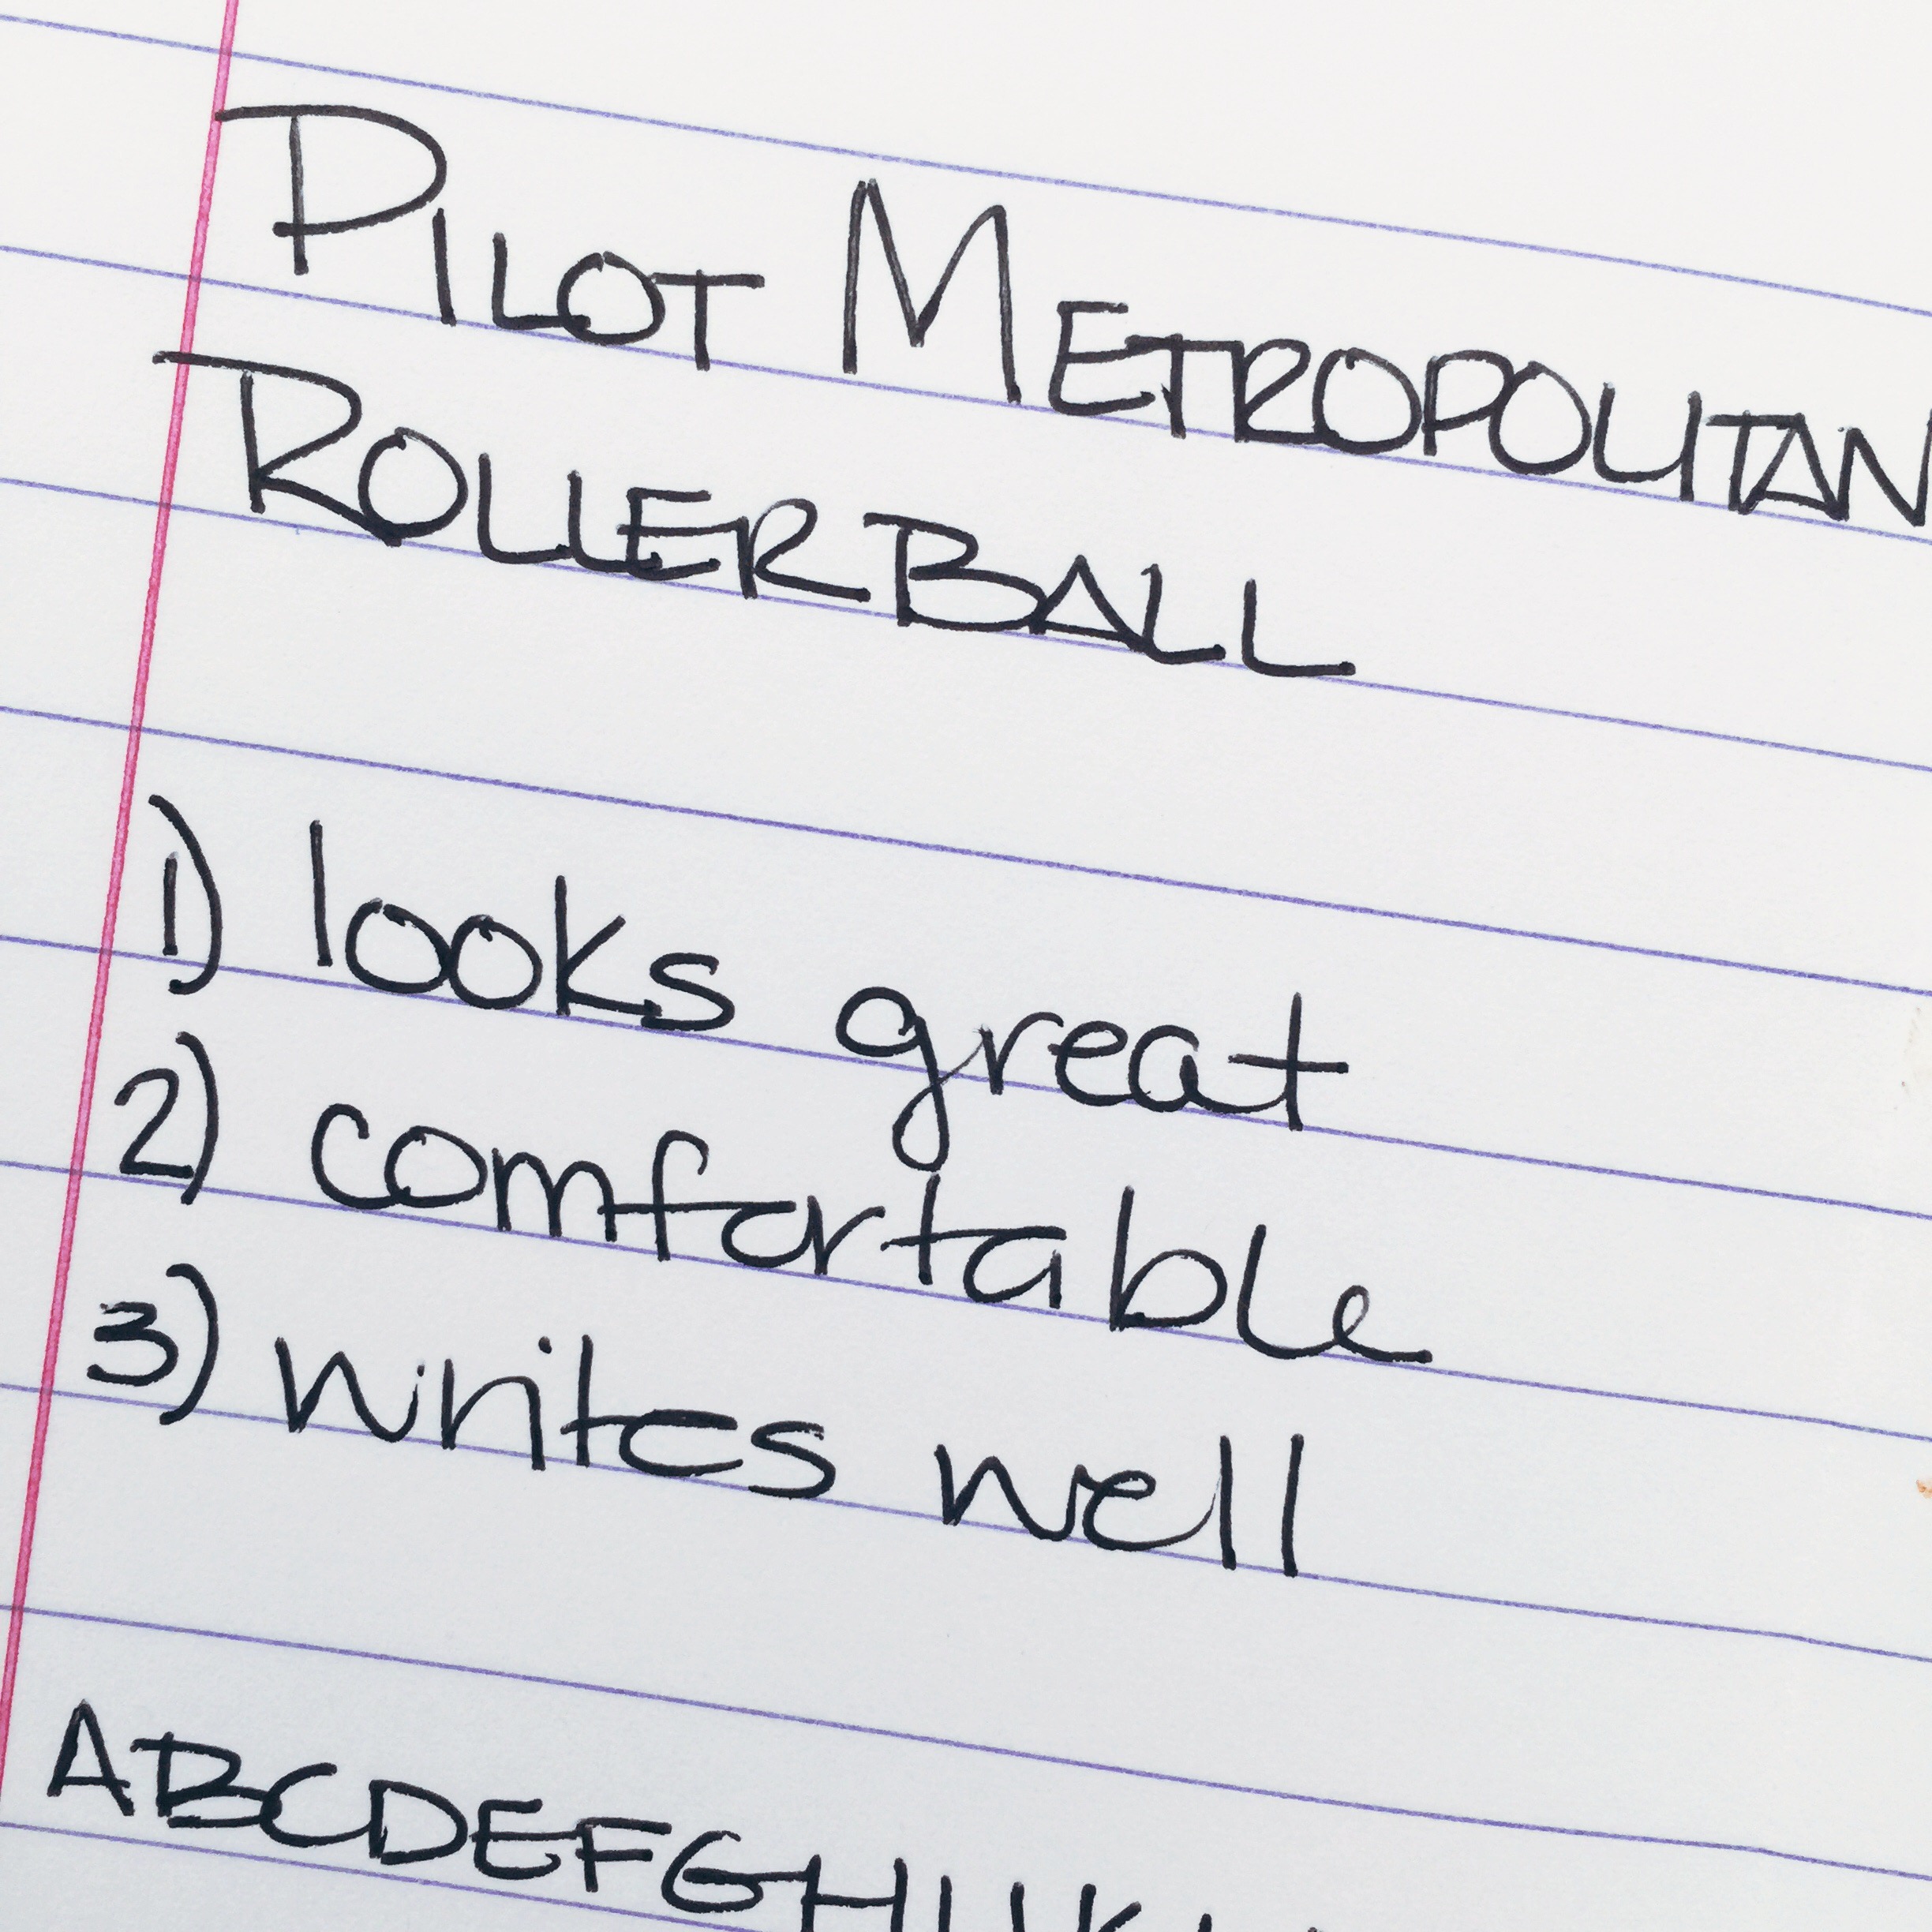 PILOT METROPOLITAN
ROLLERBALL
1) looks great
2) comfortable
3) writes well
ABCDEFGHIJK